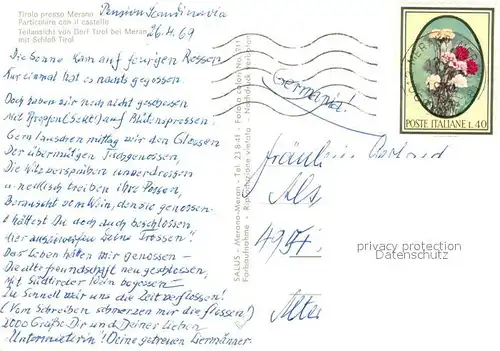 Tirolo presso Merano
Particolare con il castello
Teilansicht von Dorf Tirol bei Meran
mit Schloß Tirol
Pension Scandinavia
26.4.69
Die Sonne kam auf feurgen Rossen
Nur einmal hat es nachts gegossen
Doch haben wir noch nicht geschossen
Mit Pfropfen (Sekt) auf Blütensprossen.
Gern lauschen mittag wir den Glossen
Der übermütigen Tischgenossen,
Die Witz versprühen unverdrossen
u. neckisch treiben ihre Possen,
Berauscht vom Wein, den sie genossen.
Hättest Du doch auch beschlossen
Hier auszuwerfen Deine Trossen!
Das Leben hätten wir genossen –
Die alte Freundschaft neu geschlossen,
Mit Südtiroler Wein begossen –
Zu schnell wär uns die Zeit verflossen!
(Vom Schreiben schmerzen mir die Flossen)
2000 Grüße Dir und Deiner lieben
Untermieterin! Deine getreuen Liermänner.
SALUS - Merano-Meran - Tel. 23-8-41
Farbaufnahme - Riproduzione vietata - Nachdruck verboten
POSTE ITALIANE L. 40
Germania!
Fräulein
4951
privacy protection
Datenschutz